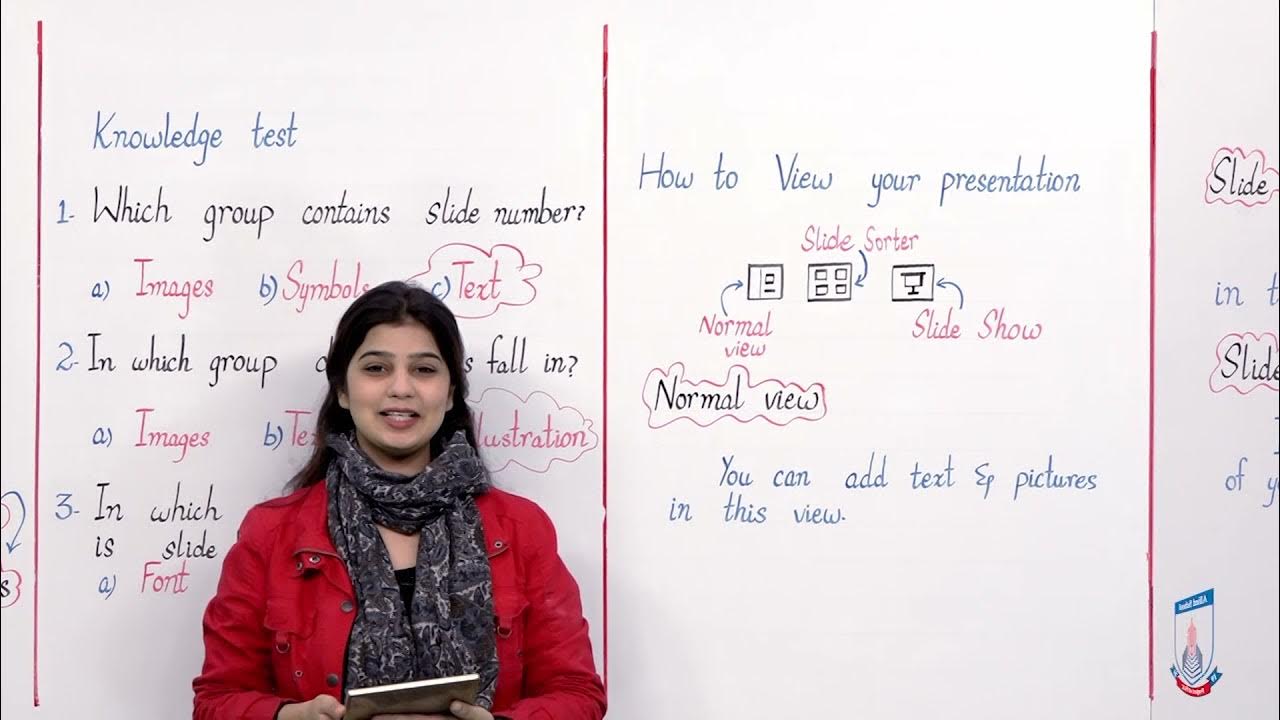 Knowledge test
1- Which group contains slide number?
a) Images b) Symbols c) Text
2- In which group s fall in?
a) Images b) lustration
3- In which
is slide
a) Font
How to View your presentation
Slide Sorter
Normal
view
Slide Show
Normal view
You can add text & pictures
in this view.
Slide
in t
Slide
of y